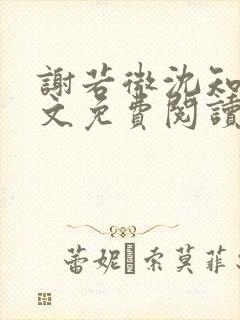 謝若微沈知
文免費閱讀
蕾妮 索莫菲